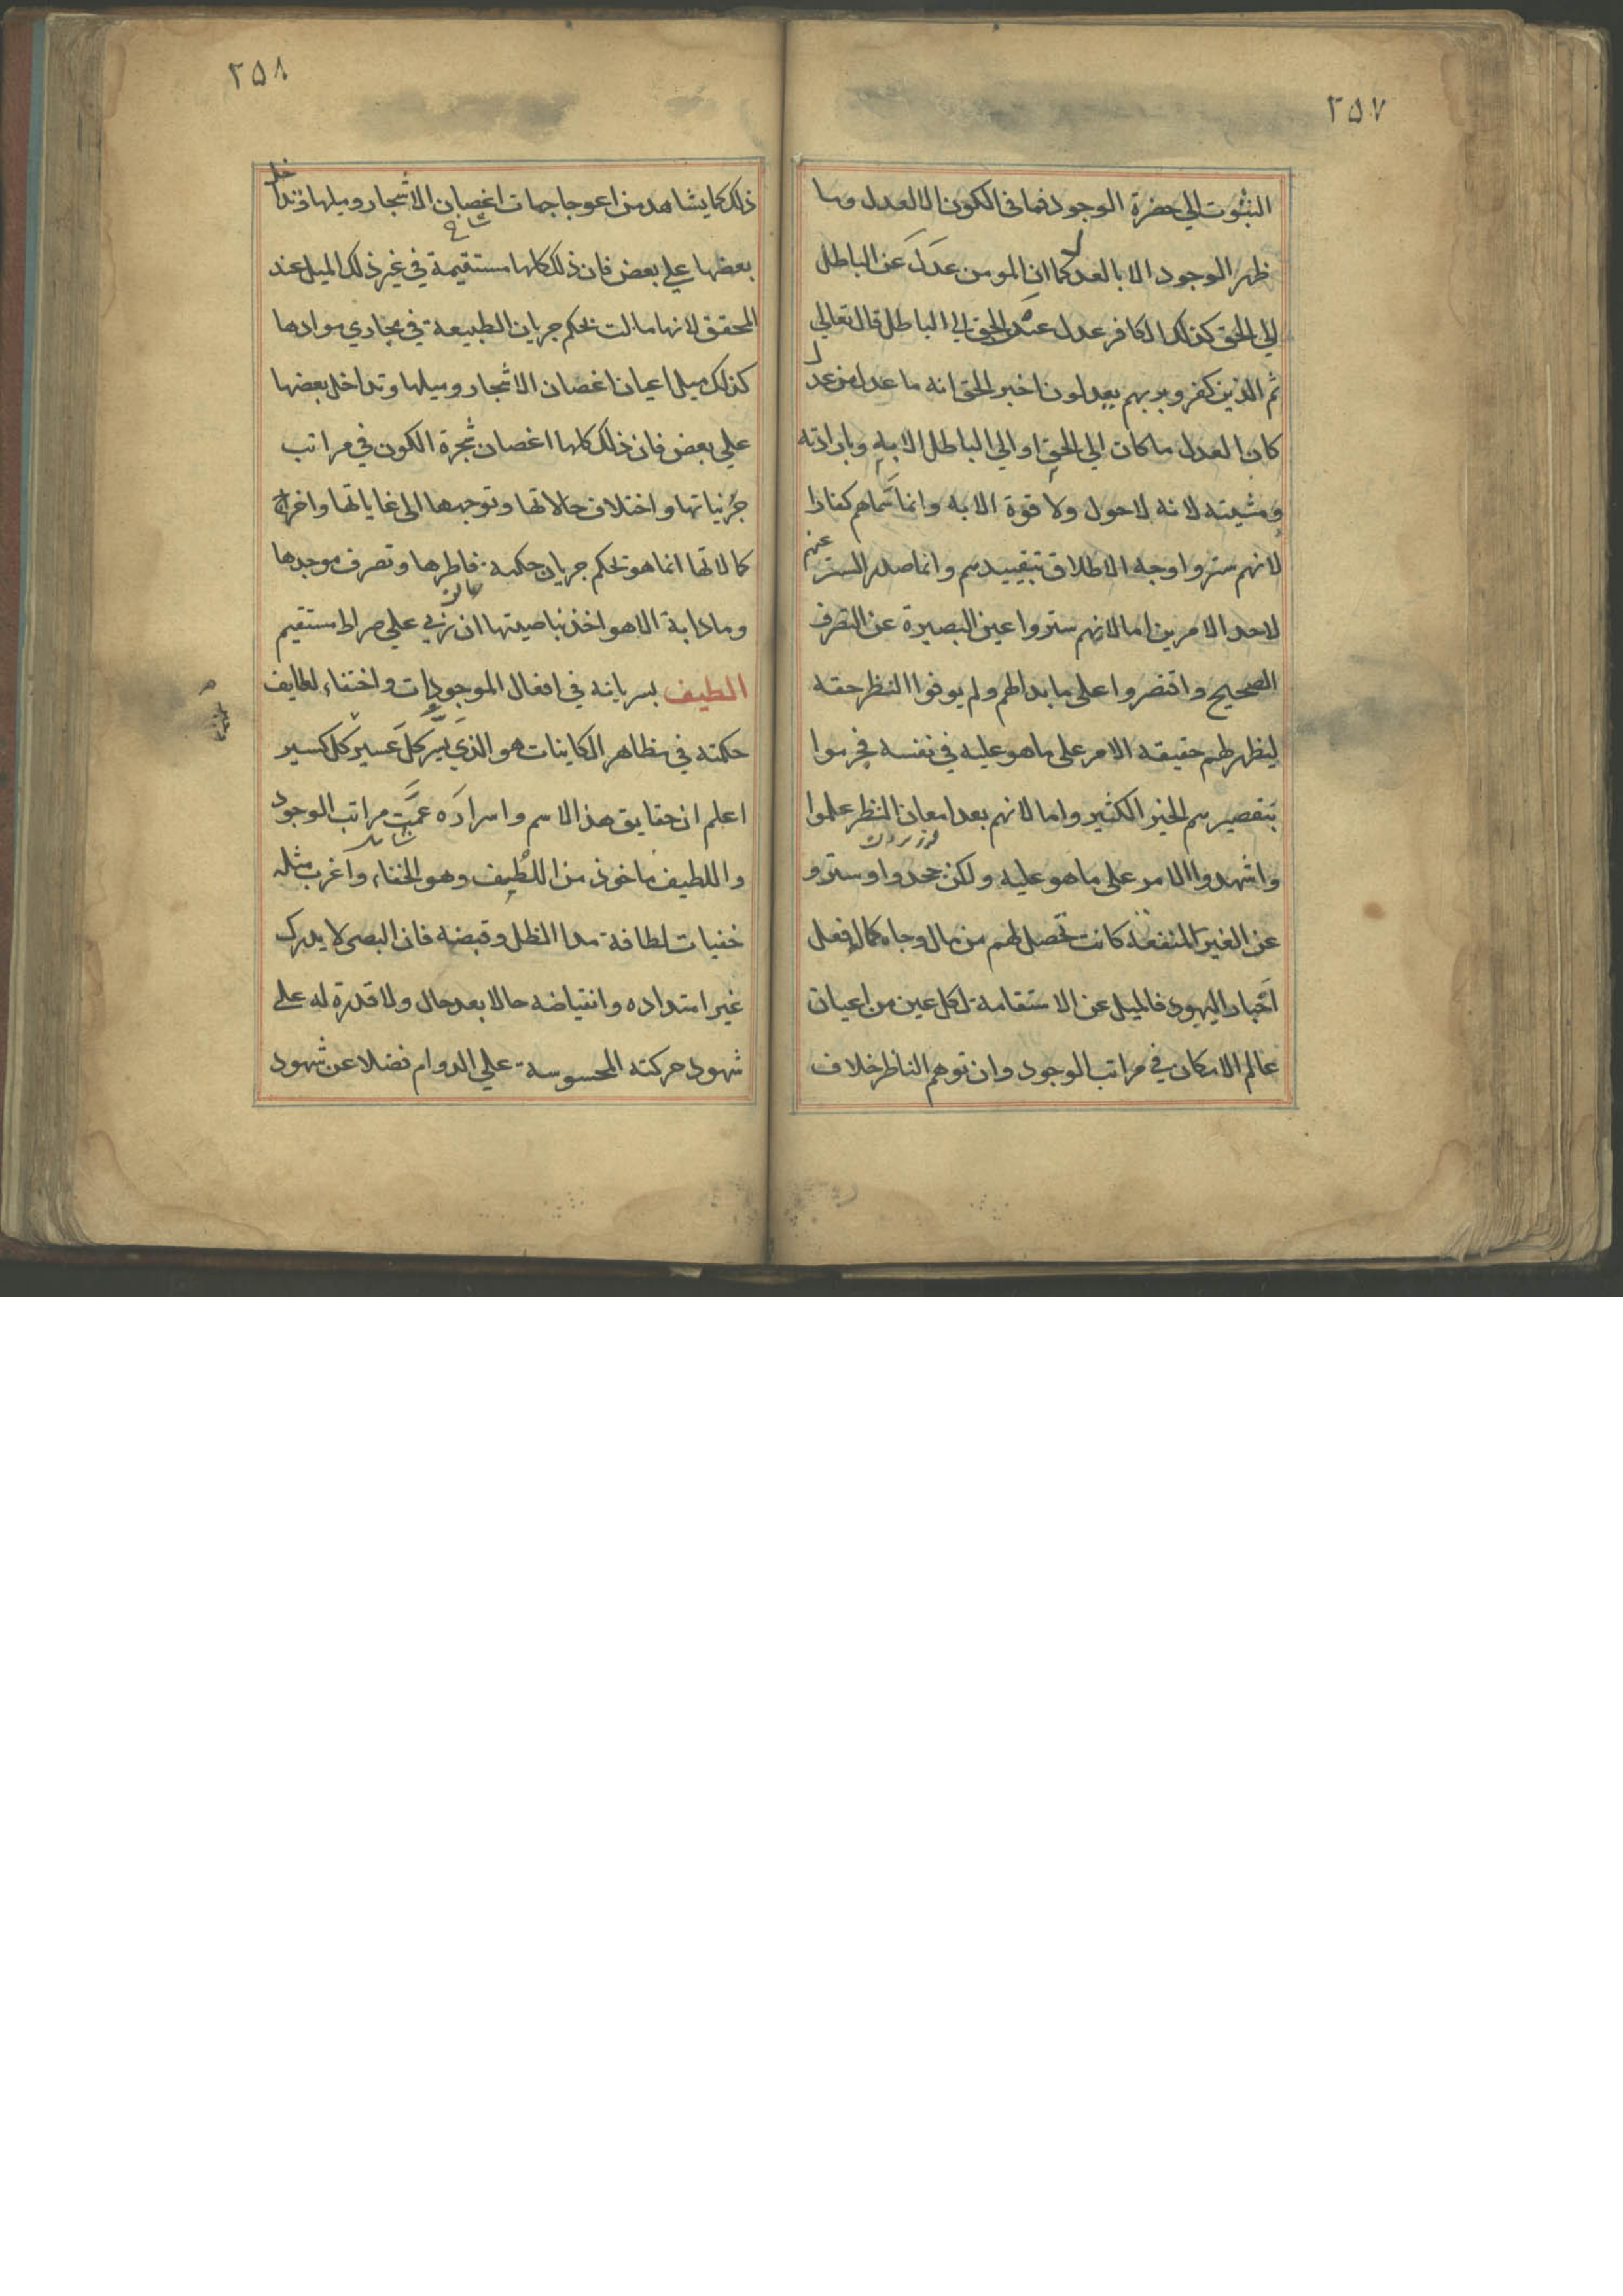 ٢٥٧
الثبوت الي حضرة الوجود فما في الكون الا العدل وما
ظهر الوجود الا بالعدل كما ان المومن عدل عن الباطل
الي الحق كذلك الكافر عدل عن الحق الي الباطل قال تعالي
ثم الذين كفروا بربهم يعدلون اخبر الحق انه ما عدل من عدل
كان العدل ما كان الي الحق او الي الباطل الا به وبارادته
ومشيته لانه لا حول ولا قوة الا به وانما سماهم كفارا
لانهم ستروا وجه الاطلاق بتقييدهم وانما صدر الستر عنهم
لاحد الامرين اما لانهم ستروا عين البصيرة عن التصرف
الصحيح واقتصروا على ما بدا لهم ولم يوفوا النظر حقه
ليظهر لهم حقيقه الامر على ما هو عليه في نفسه فحرموا
بتقصيرهم الخير الكثير واما لانهم بعد امعان النظر علموا
واشهدوا الامر على ما هو عليه ولكن جحدوا وستروا
عن الغير لمنفعة كانت تحصل لهم من مال وجاه كما فعل
احبار اليهود فالميل عن الاستقامة لكل عين من اعيان
عالم الامكان في مراتب الوجود وان توهم الناظر خلاف
٢٥٨
ذلك كما يشاهد من اعوجاجات اغصان الاشجار وميلها وتداخل
شاخ
بعضها علي بعض فان ذلك كلها مستقيمة في غير ذلك الميل عند
المحقق لانها مالت بحكم جريان الطبيعة في مجاري موادها
كذلك ميل اعيان اغصان الاشجار وميلها وتداخل بعضها
علي بعض فان ذلك كلها اغصان شجرة الكون في مراتب
جزئياتها واختلاف حالاتها وتوجهها الى غاياتها واخراج
كمالاتها انما هو بحكم جريان حكمة فاطرها وتصرف موجدها
وما دابة الا هو اخذ بناصيتها ان ربي علي صراط مستقيم
اللطيف بسريانه في افعال الموجودات واختفاء لطايف
حكمته في مظاهر الكاينات هو الذي يسر كل عسير كل كسير
اعلم ان حقايق هذا الاسم واسراره عمت مراتب الوجود
واللطيف ماخوذ من اللطيف وهو الخفاء واغرب مثله
خفيات لطافة مدا الظل وقبضه فان البصر لا يدرك
غير امتداده وانقباضه حالا بعد حال ولا قدرة له على
شهود حركته المحسوسة علي الدوام فضلا عن شهود